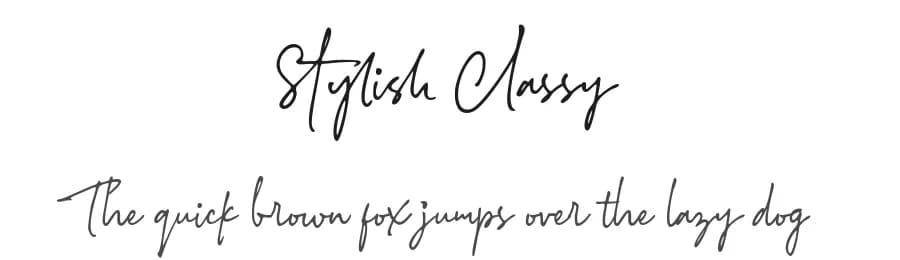 Stylish Classy
The quick brown fox jumps over the lazy dog